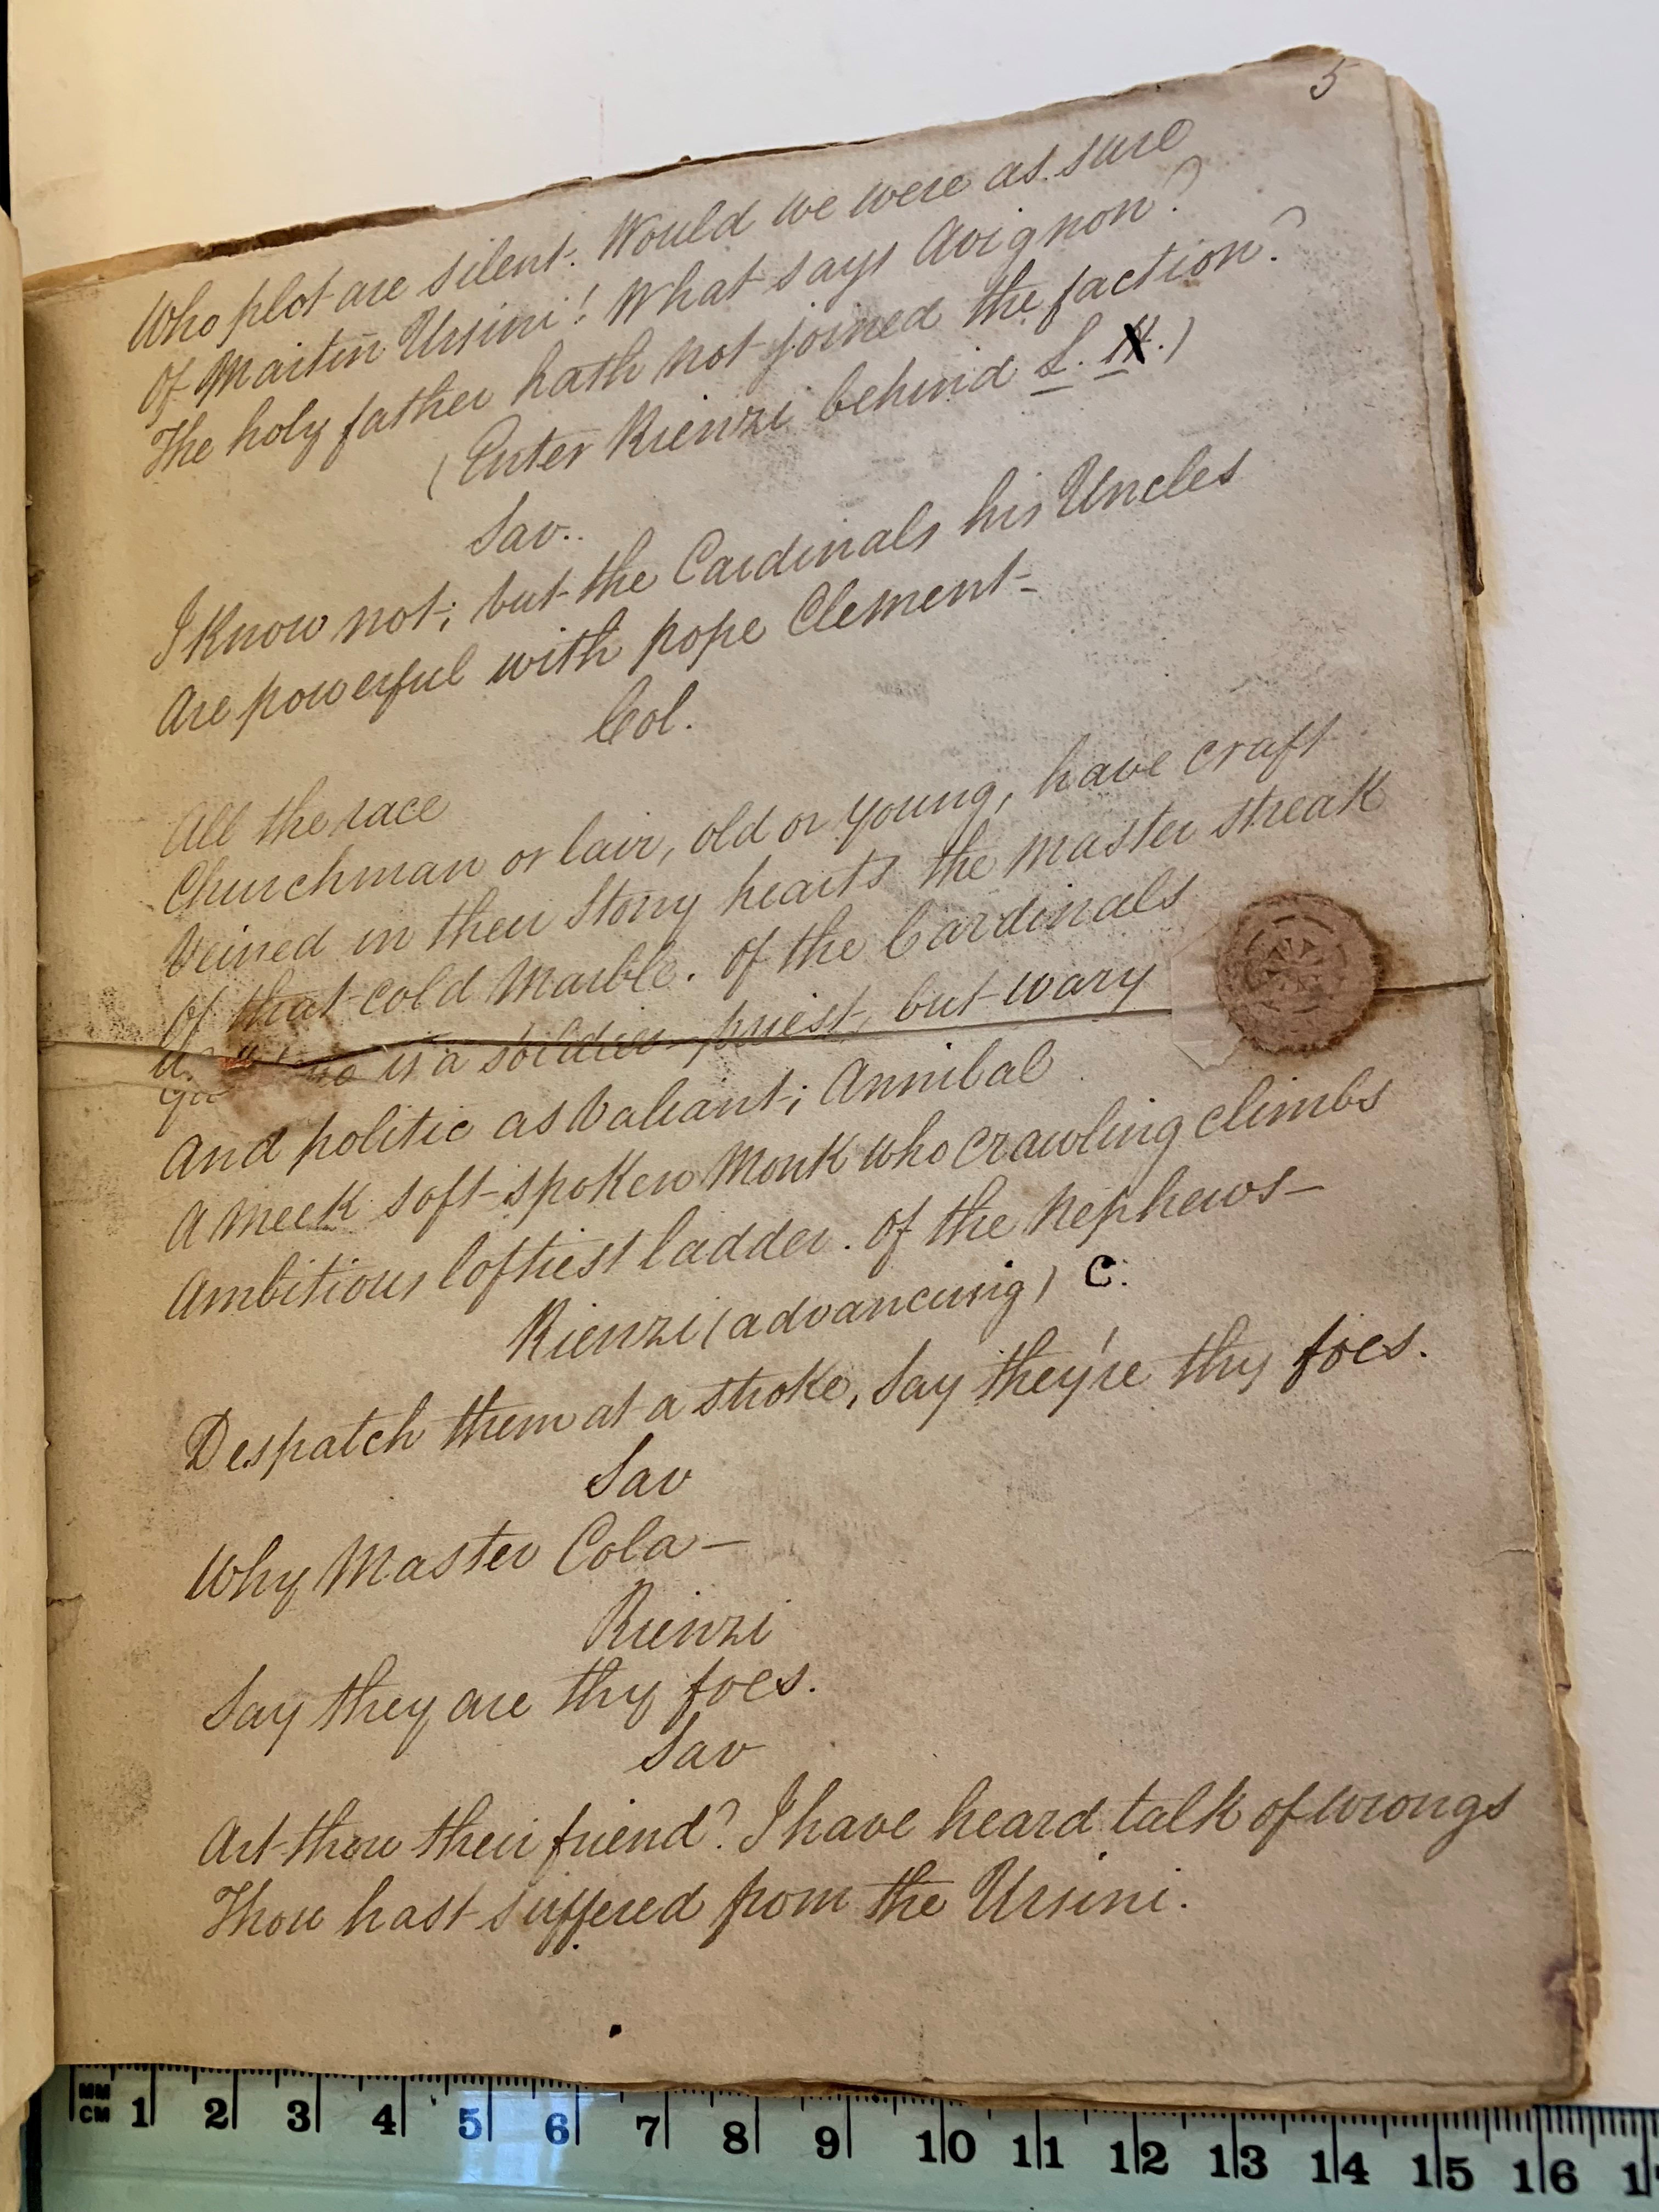 5
Who plot are silent. Would we were as sure
Of Martin Ursini! What says Avignon?
The holy father hath not joined the faction?
(Enter Rienzi behind L.
Sav..
I know not; but the Cardinals his Uncles
Are powerful with pope Clement-
Col.
All the race
Churchman or laic, old or young, have craft
Veined in their stony hearts the master streak
Of that cold Marble. Of the Cardinals
is a soldier-priest, but wary
And politic as Valiant; Annibal
A meek soft-spoken Monk who crawling climbs
Ambitions loftiest ladder. Of the Nephews-
Rienzi (advancing) C.
Despatch them at a stroke, Say they're thy foes.
Sav
Why Master Cola-
Rienzi
Say they are thy foes.
Sav
Art thou their friend? I have heard talk of wrongs
Thou hast suffered from the Ursini.
MM
CM 1 2 3 4 5 6 7 8 9 10 11 12 13 14 15 16